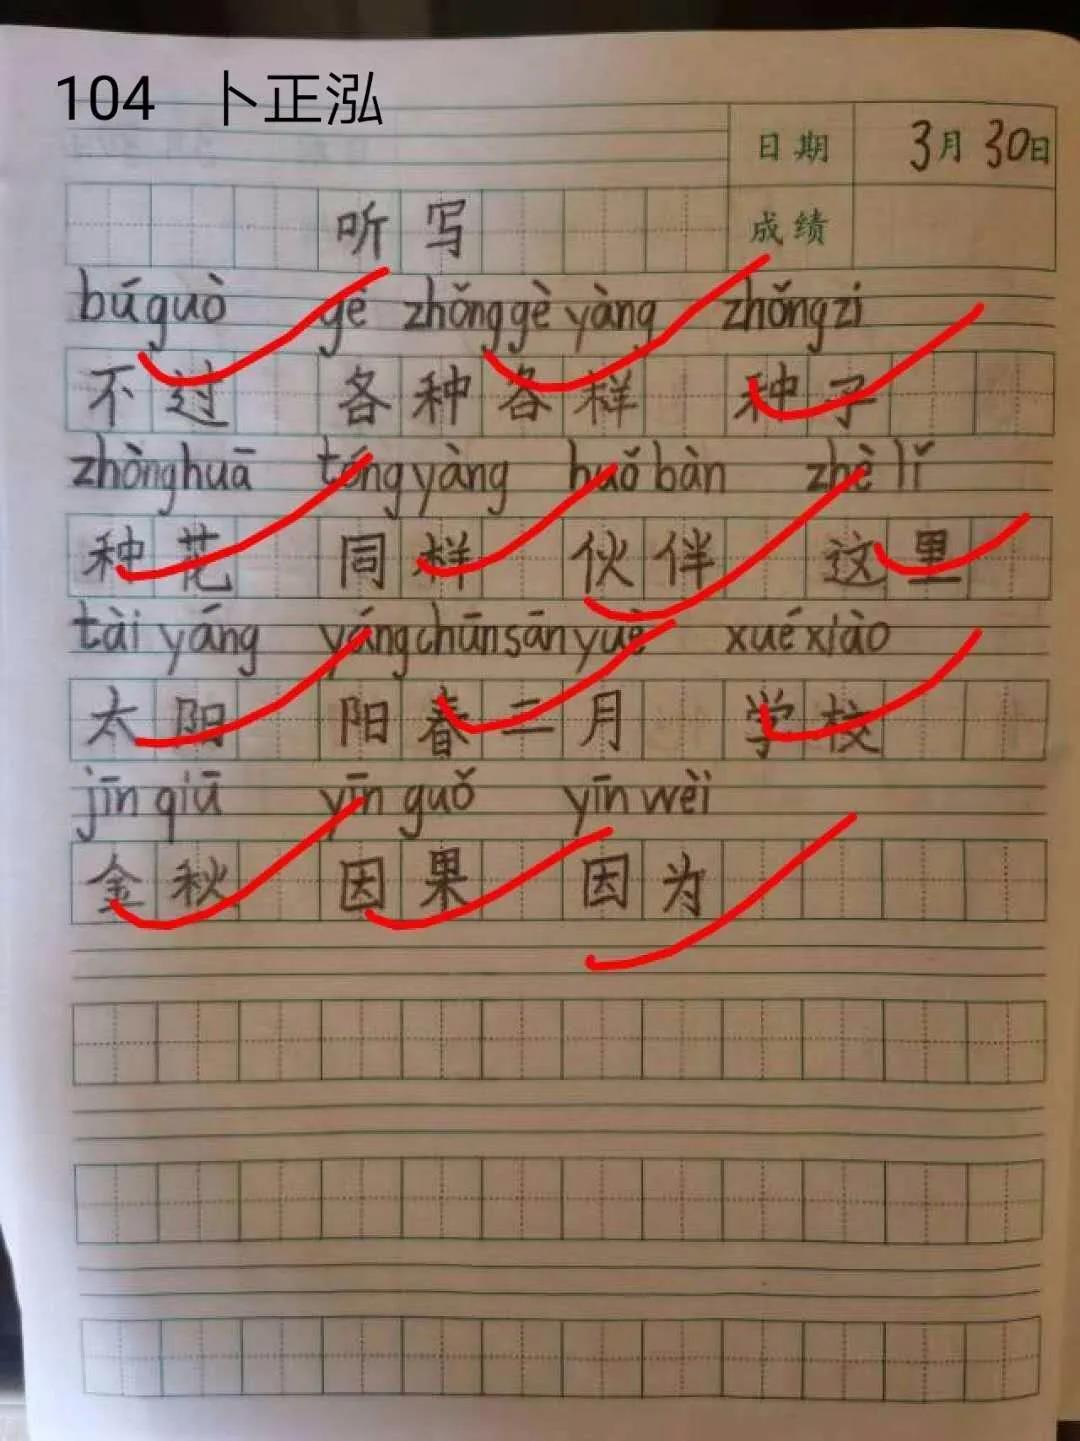 104 卜正泓
日期 3月30日
听写 成绩
búguò gè zhǒng gè yàng zhǒngzi
不过 各种各样 种子
zhònghuā tóngyàng huǒbàn zhè lǐ
种花 同样 伙伴 这里
tài yáng yángchūnsānyuè xuéxiào
太阳 阳春二月 学校
jīn qiū yīn guǒ yīn wèi
金秋 因果 因为